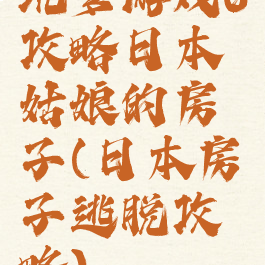 攻略日本
姑娘的房
子(日本房
子逃脱攻
略)